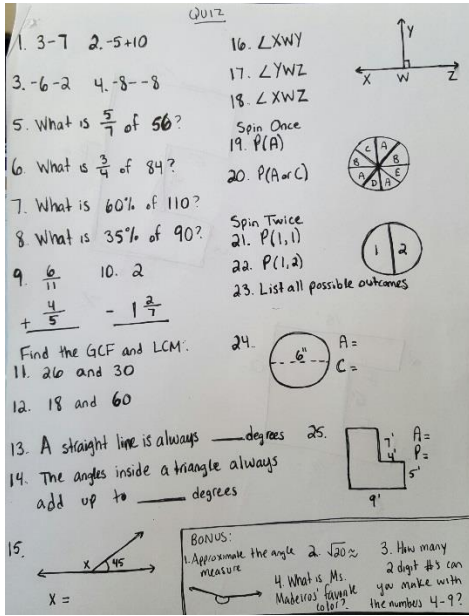 QUIZ
1. 3-7 2. -5+10
3. -6-2 4. -8--8
5. What is 5/7 of 56?
6. What is 3/4 of 84?
7. What is 60% of 110?
8. What is 35% of 90?
9. 6/11 + 4/5 10. 2 - 1 2/7
Find the GCF and LCM:
11. 26 and 30
12. 18 and 60
13. A straight line is always ___ degrees
14. The angles inside a triangle always
add up to ___ degrees
15.
x 45
x =
16. ∠XWY
17. ∠YWZ
18. ∠XWZ
Y
X W Z
Spin Once
19. P(A)
20. P(A or C)
C A
B B
A E
D A
Spin Twice
21. P(1,1)
22. P(1,2)
1 2
23. List all possible outcomes
24. 6" A=
C=
25. 7' A=
4' P=
5'
9'
BONUS:
1. Approximate the angle
measure
2. √20 ≈
3. How many
2 digit #s can
you make with
the numbers 4-9?
4. What is Ms.
Madeiros' favorite
color?